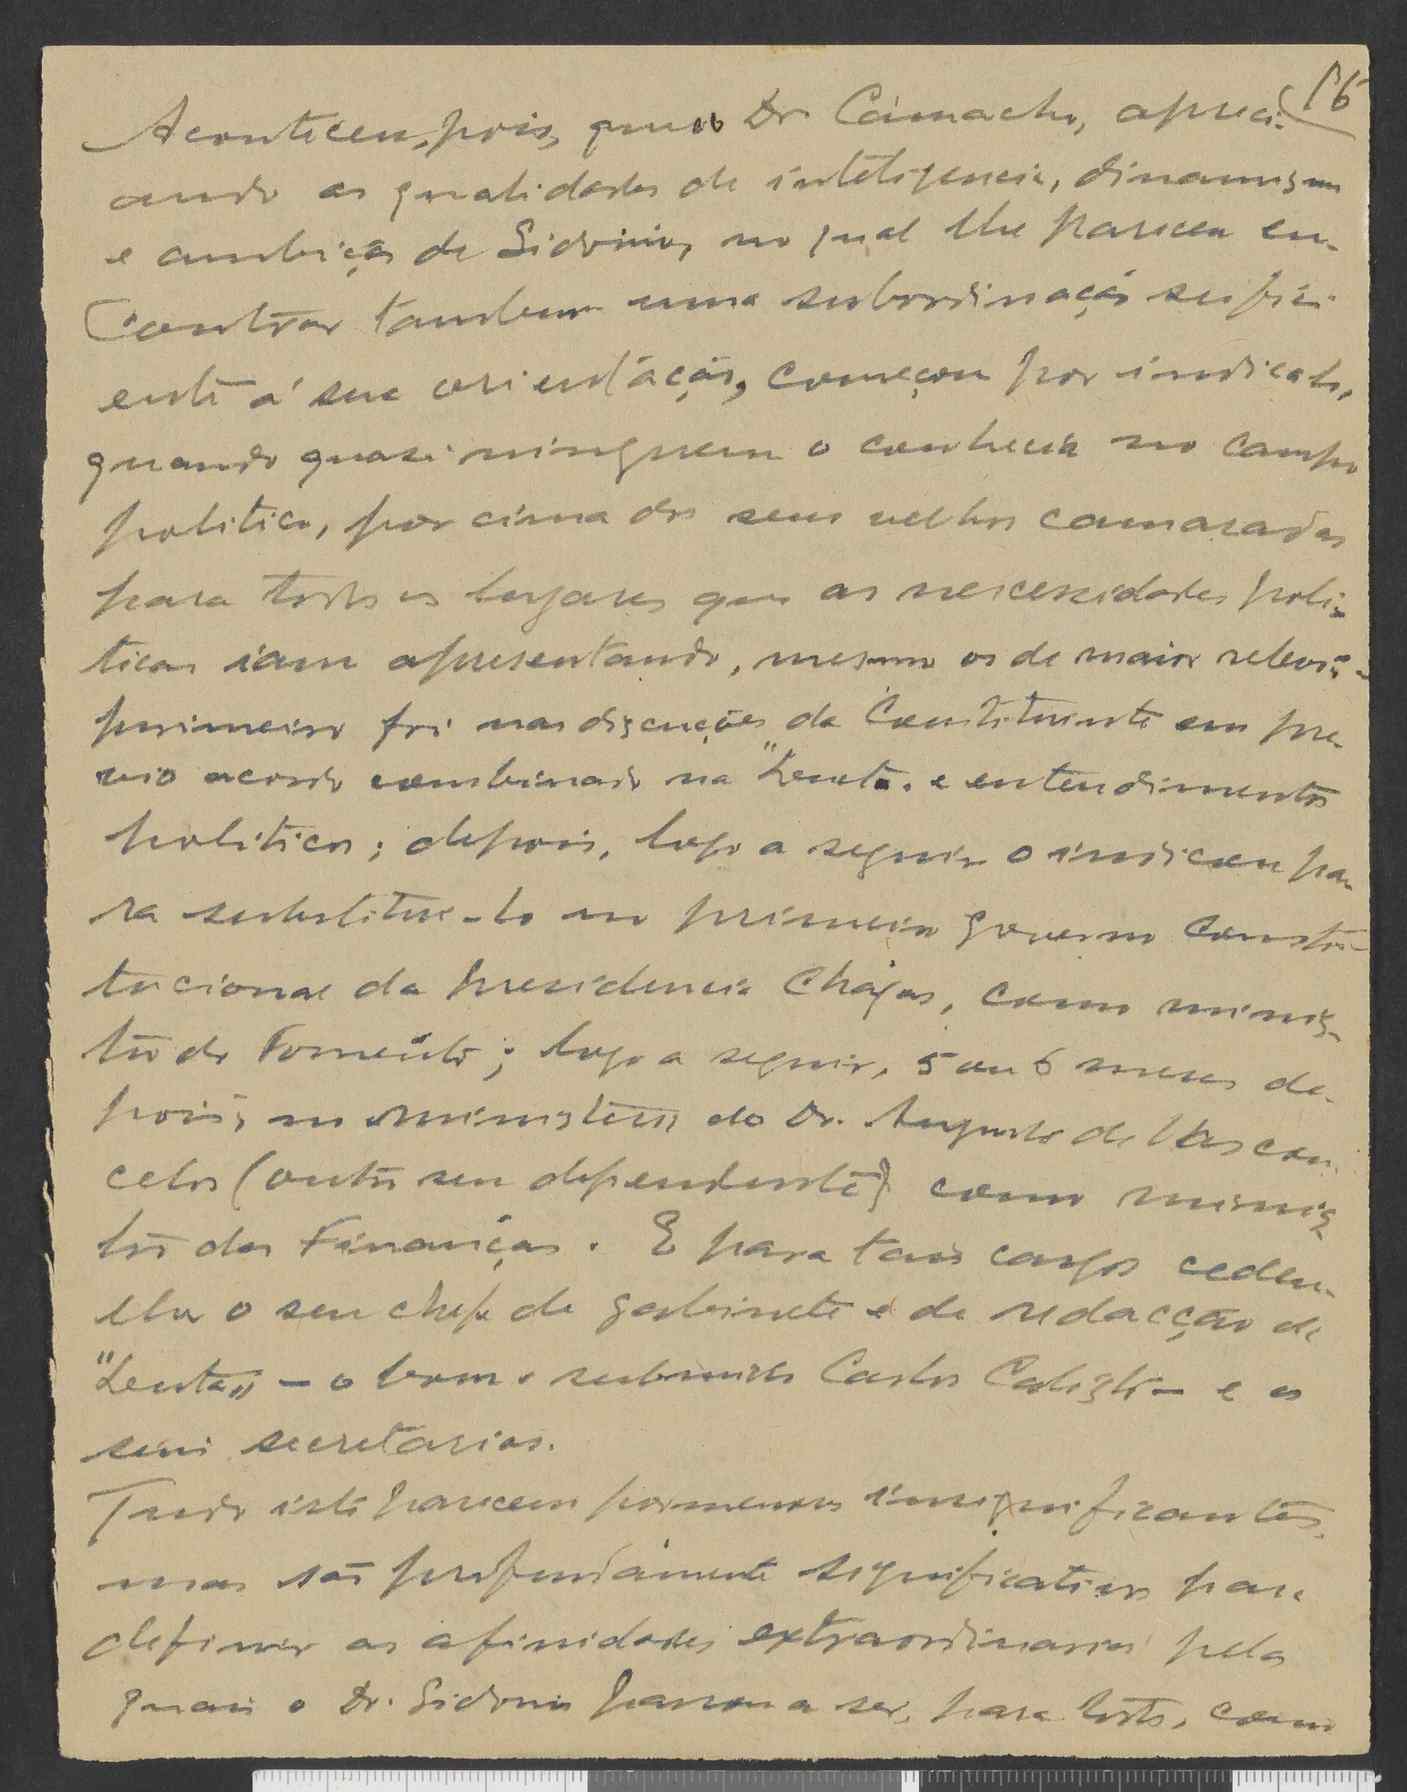 16
Aconteceu, pois, que o Dr. Camacho, apreci-
ando as qualidades de inteligencia, dinamismo
e ambição de Sidonio, no qual lhe pareceu en-
contrar tambem uma subordinação sufici-
ente á sua orientação, começou por indicalo,
quando quasi ninguem o conhecia no campo
politico, por cima dos seus velhos camaradas
para todos os logares que as necessidades poli-
ticas iam apresentando, mesmo os de maior relevo:
primeiro foi nas discuções da Constituinte em pre-
vio acordo combinado na "Lucta" e entendimentos
politicos; depois, logo a seguir o indicou pa-
ra substitui-lo no primeiro governo consti-
tucional da presidencia Chagas, como minis-
tro do Fomento; logo a seguir, 5 ou 6 meses de-
pois, no ministerio do Dr. Augusto de Vascon-
celos (outro seu dependente) como minis-
tro das Finanças. E para tais cargos cedeu-
lhe o seu chefe de gabinete e de redacção de
"Lucta" - o bom e submisso Carlos Calixto - e os
seus secretarios.
Tudo isto parecem pormenores insignificantes,
mas são profundamente significativos para
definir as afinidades extraordinarias pelas
quais o Dr. Sidonio passou a ser, para todos, como